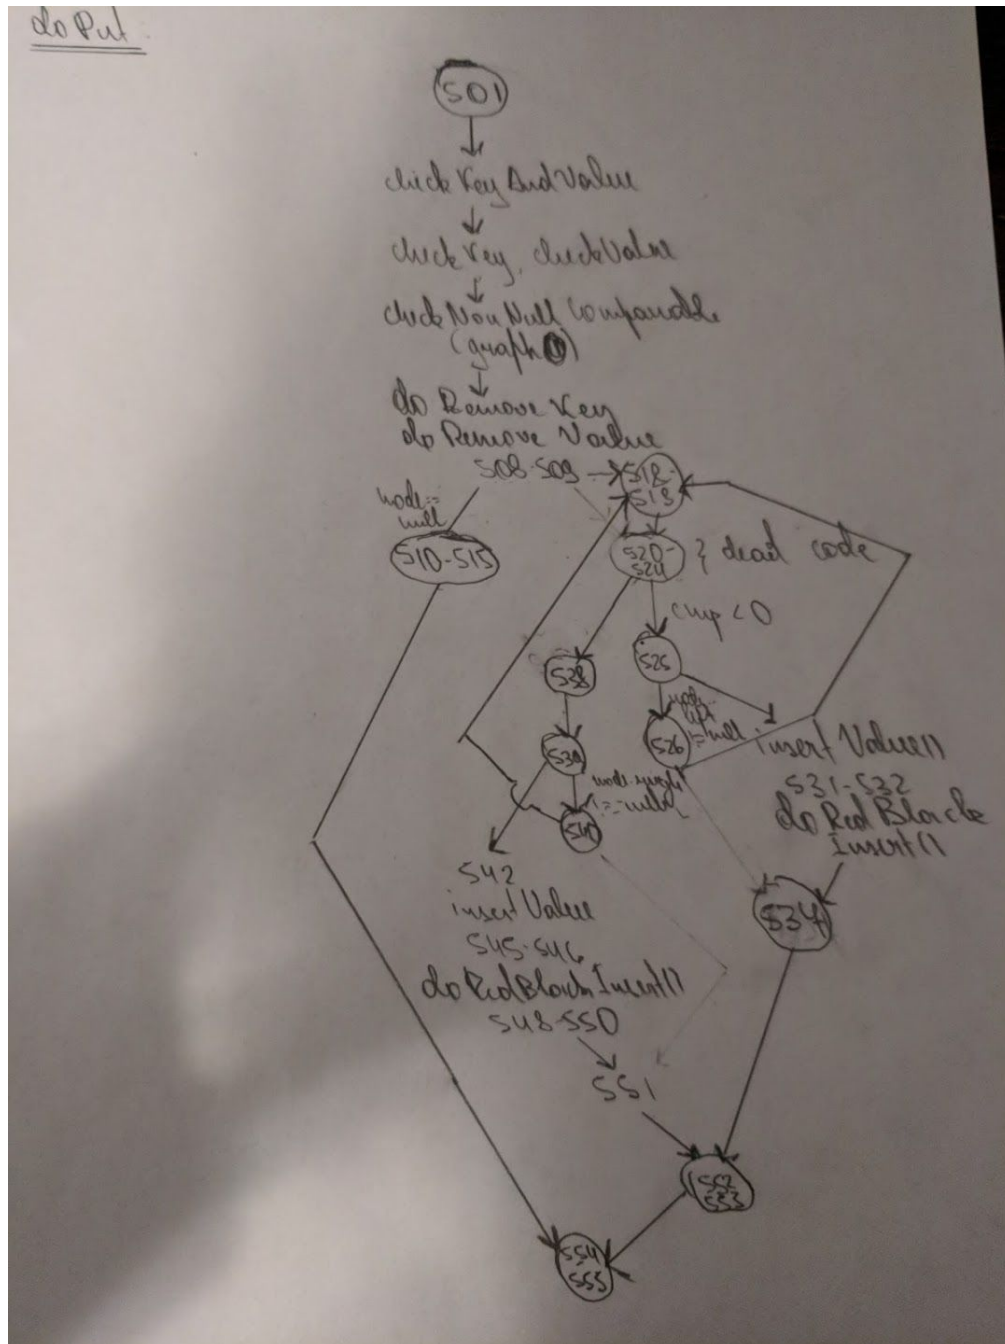 do Put.
501
checkKeyAndValue
checkKey, checkValue
checkNonNullComparable
(graph 1)
do Remove Key
do Remove Value
508-509
518-
519
node==
null
510-515
520-
524
} dead code
cmp < 0
525
538
node.
left
!= null
526
539
insert Value()
531-532
do Red Black
Insert()
node.right
!= null
540
534
542
insert Value
545-546
do RedBlack Insert()
548-550
551
552
553
554
555